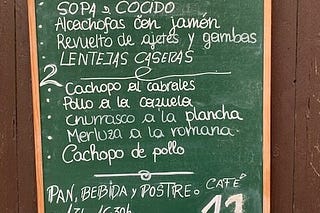 SOPA D COCIDO
Alcachofas con jamón
Revuelto de ajetes y gambas
LENTEJAS CASERAS
2
Cachopo al cabrales
Pollo a la cazuela
churrasco a la plancha
Merluza a la romana
Cachopo de pollo
PAN, BEBIDA y POSTRE o CAFÉ
11